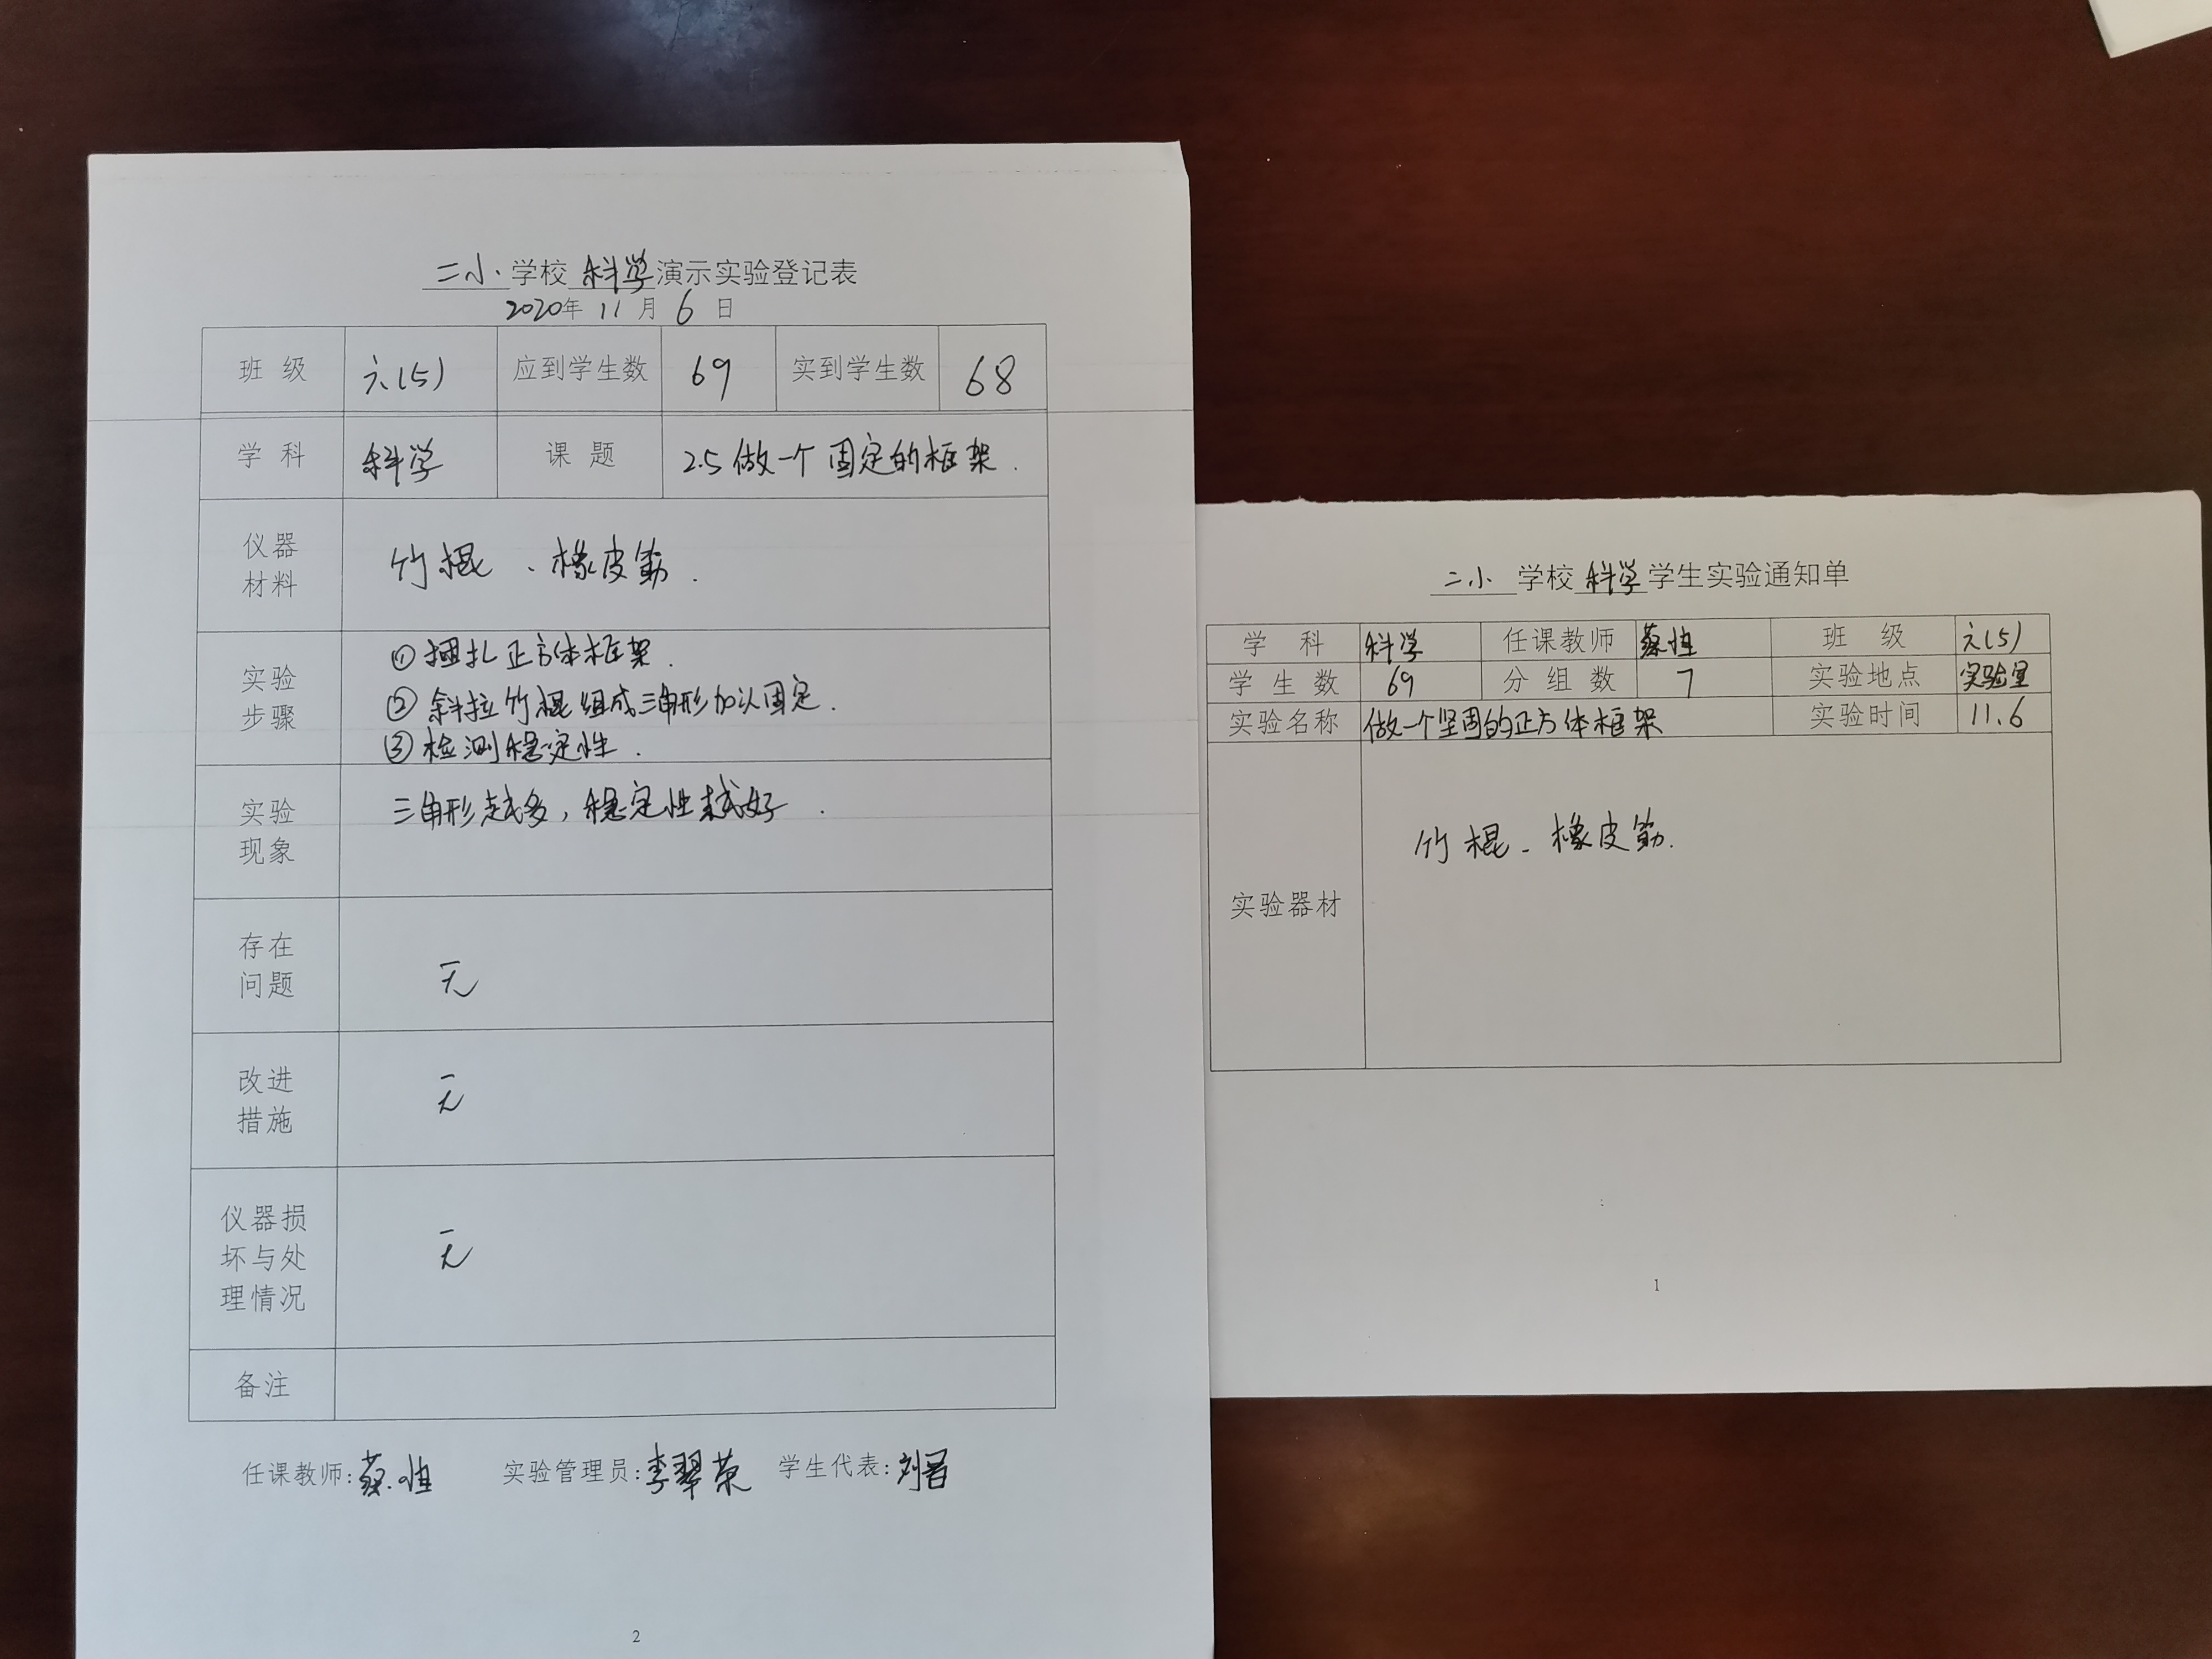 二小 学校 科学 演示实验登记表
2020年 11 月 6 日
班 级 六(5) 应到学生数 69 实到学生数 68
学 科 科学 课 题 2.5 做一个固定的框架.
仪器
材料
竹棍、橡皮筋.
实验
步骤
①捆扎正方体框架.
②斜拉竹棍组成三角形加以固定.
③检测稳定性.
实验
现象
三角形越多,稳定性越好.
存在
问题
无
改进
措施
无
仪器损
坏与处
理情况
无
备注
任课教师:蔡 实验管理员:李翠荣 学生代表:刘
2
二小 学校 科学 学生实验通知单
学 科 科学 任课教师 蔡 班 级 六(5)
学 生 数 69 分 组 数 7 实验地点 实验室
实验名称 做一个坚固的正方体框架 实验时间 11.6
实验器材
竹棍、橡皮筋.
1